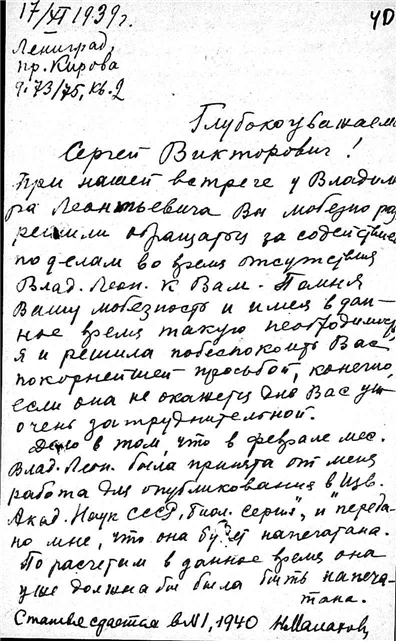 17/XI 1939г.
ЧД
Ленинград,
пр. Кирова
д. 73/75, кв. 2
Глубокоуважаемы
Сергей Викторович!
При нашей встрече у Владими
ра Леонтьевича Вы любезно раз
решили обращаться за содействие
по делам во время отсутствия
Влад. Леон. к Вам. Помня
Вашу любезность и имея в дан-
ное время такую необходимость
я и решила побеспокоить Вас
покорнейшей просьбой, конечно,
если она не окажется для Вас уж
очень затруднительной.
Дело в том, что в феврале мес.
Влад. Леон. была принята от меня
работа для опубликования в Изв.
Акад. Наук СССР, биол. серия", и переда-
но мне, что она будет напечатана.
По расчетам в данное время она
уже должна бы была быть напеча-
тана.
Статья сдается в N1, 1940